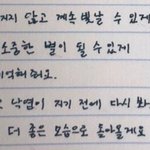 지지 않고 계속 빛날 수 있게
소중한 별이 될 수 있게
억해줘요.
낙엽이 지기 전에 다시 봐
더 좋은 모습으로 돌아올게요